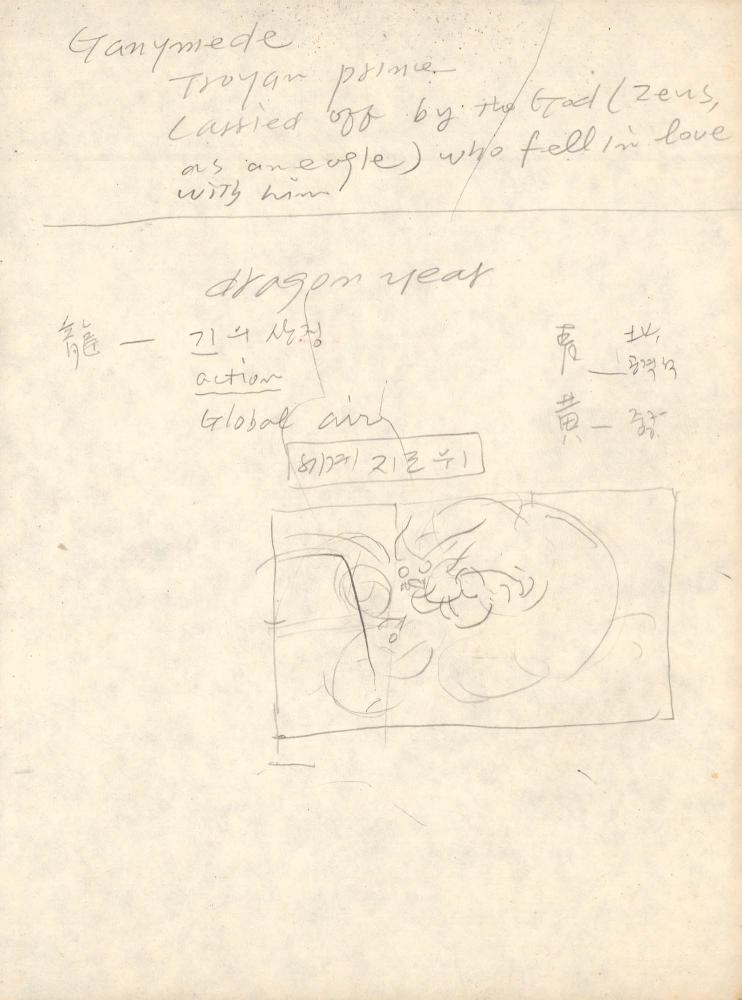 Ganymede
Troyan prince
Carried off by the God (Zeus,
as an eagle) who fell in love
with him
dragon year
龍 — 기의 상징
靑 — 北, 공격적
action
黃 — 중앙
Global air
세계 지도 위